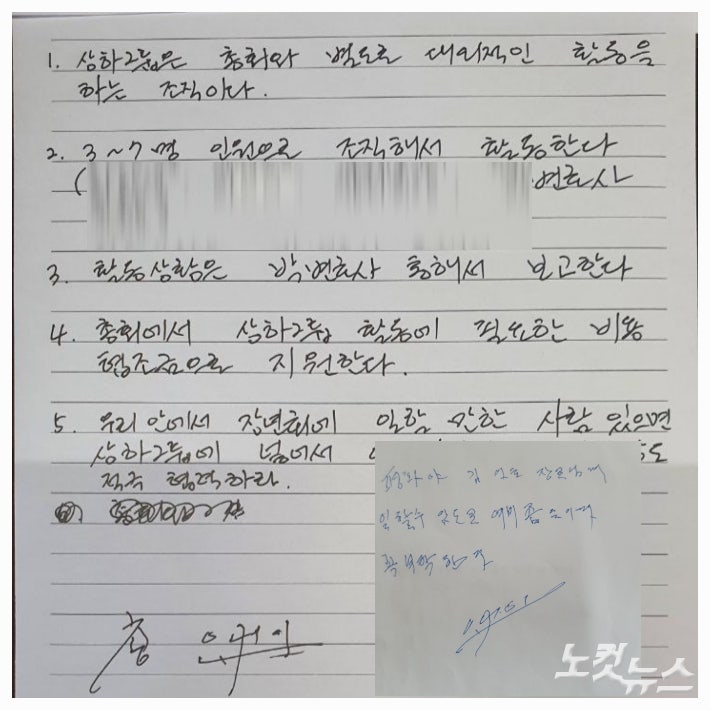 1. 상하그룹은 총회와 별도로 대외적인 활동을
하는 조직이다.
2. 3~7명 인원으로 조직해서 활동한다
( 변호사
3. 활동상황은 박변호사 통해서 보고한다
4. 총회에서 상하그룹 활동에 필요한 비용
협조금으로 지원한다.
5. 우리 안에서 장년회에 일할 만한 사람 있으면
상하그룹에 넣어서
적극 협력하라.
김 장로님께
일할수 있도록
꼭 부탁
총
노컷뉴스